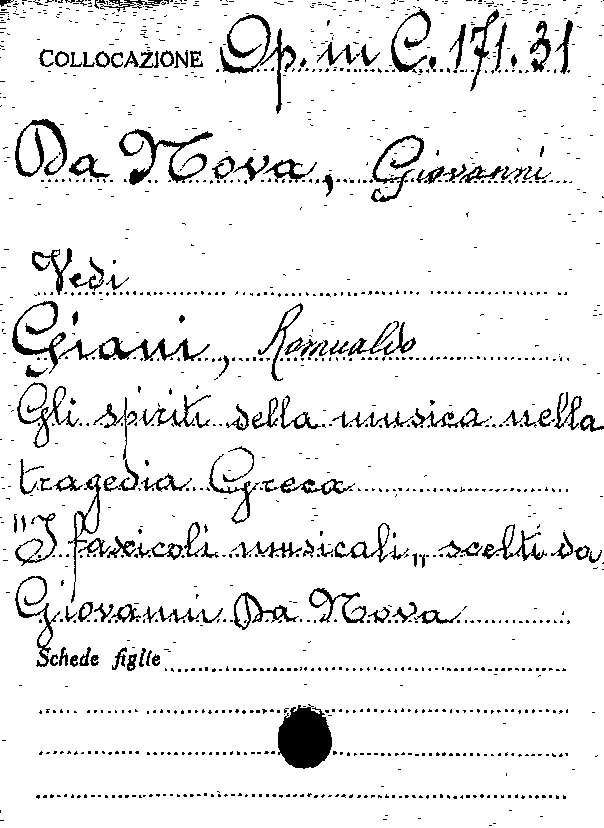 COLLOCAZIONE Op. in C. 171. 31
Da Nova, Giovanni
Vedi
Giani, Romualdo
Gli spiriti della musica nella
tragedia Greca
"I fascicoli musicali„ scelti da
Giovanni Da Nova
Schede figlie